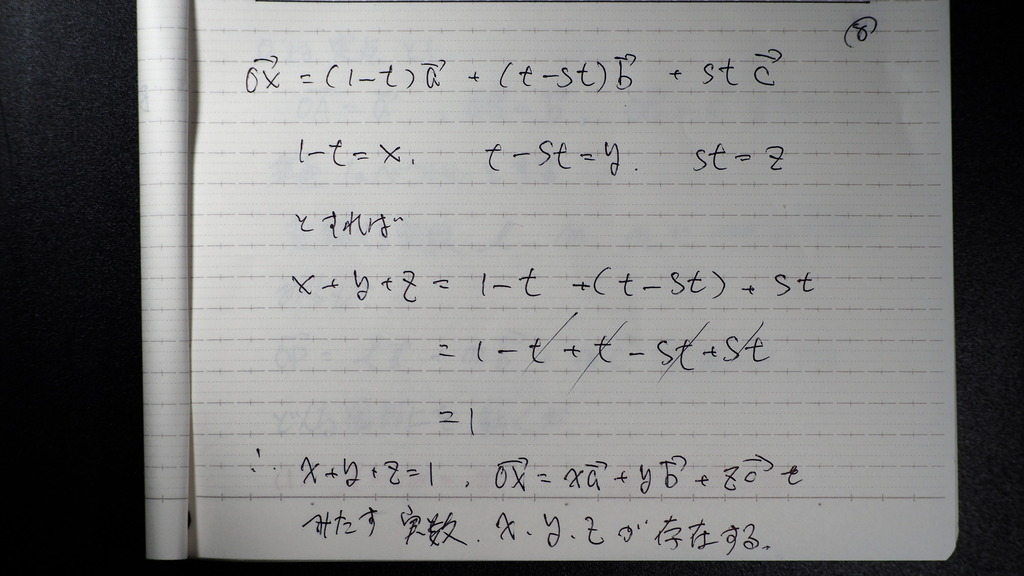 ⑧
→OX = (1-t)→a + (t-st)→b + st→c
1-t=x. t-st=y. st=z
とすれば
x+y+z = 1-t +(t-st)+st
= 1-t+t-st+st
=1
∴ x+y+z=1, →OX=x→a+y→b+z→c を
みたす実数. x.y.zが存在する.